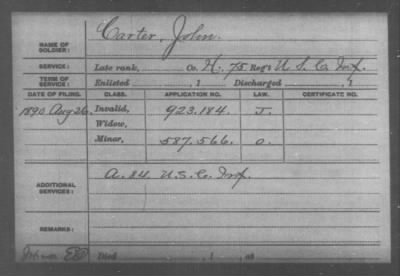 NAME OF SOLDIER: Carter, John.
SERVICE: Late rank, Co. H. 75 Reg't U. S. C. Inf.
TERM OF SERVICE: Enlisted , 1 Discharged , 1
DATE OF FILING. CLASS. APPLICATION NO. LAW. CERTIFICATE NO.
1890 Aug 26. Invalid, 923.184. J.
Widow,
Minor, 587.566. O.
ADDITIONAL SERVICES: A. 84 U.S.C. Inf.
REMARKS:
Died , 1 , at